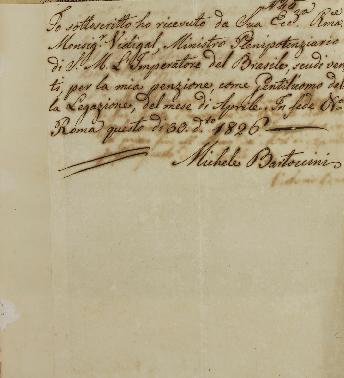 Io sottoscritto ho ricevuto da Sua Ecc.za Rma
Monsigr. Vidigal, Ministro Plenipotenziario
di S. M. L'Imperatore del Brasile, scudi ven
ti, per la mia penzione, come gentiluomo del
la Legazione, del mese di Aprile. In fede &c.
Roma questo dì 30. d.to 1826
Michele Bartoccini